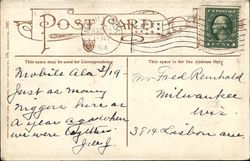 POST CARD
This space may be used for Correspondence
This space is for the Address Only
Mobile Ala 2/19-
Just as many
niggers here as
a year ago when
we were together
Mr Fred Reinhold
Milwaukee
Wis.
3814 Lisbon ave